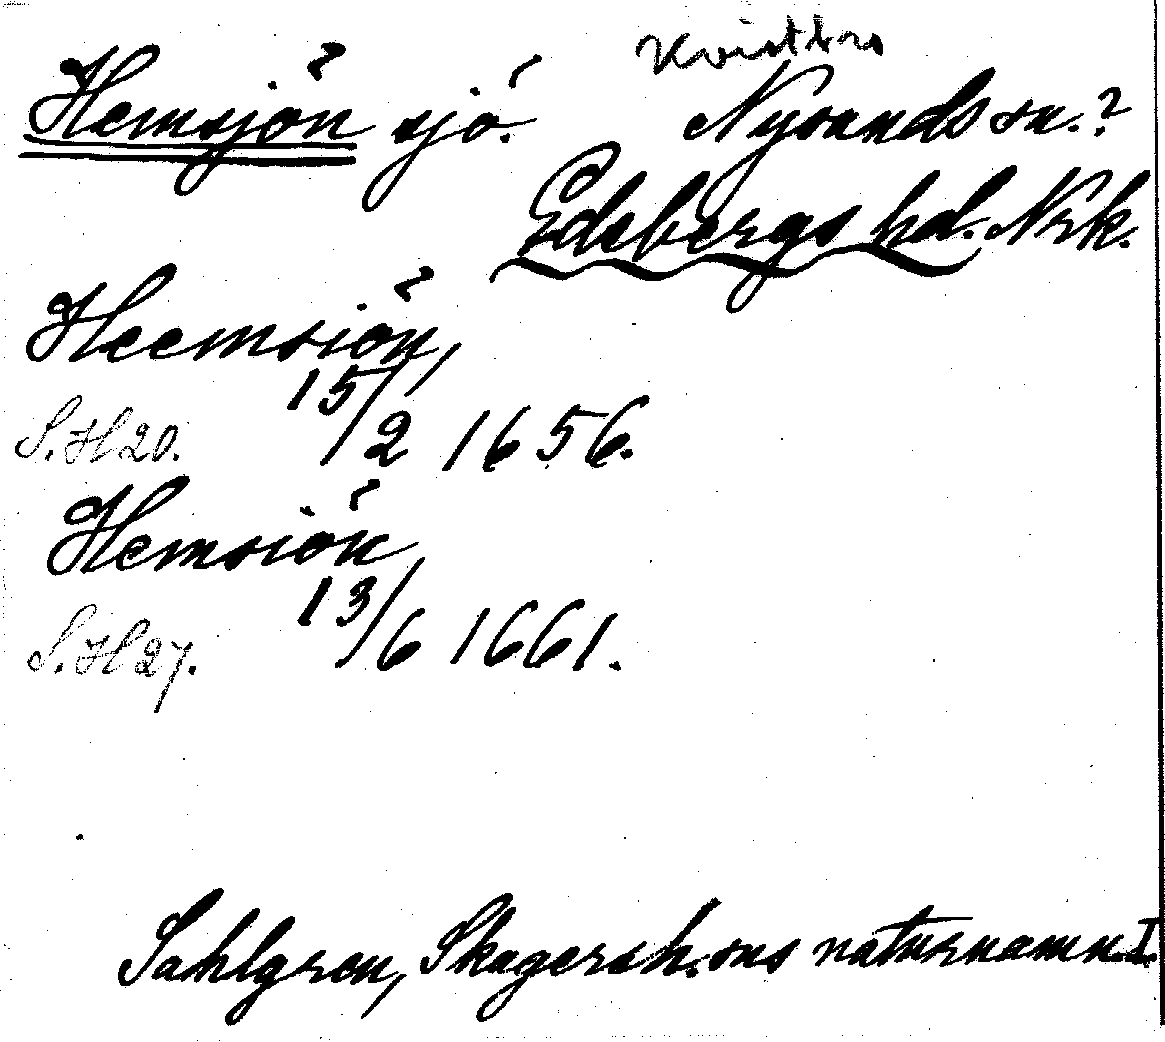 Kvistbro
Hemsjön sjö. Nysunds sn.?
Edsbergs hd. Nrk.
Heemsiön,
15/2 1656.
S.H 20.
Hemsiön,
13/6 1661.
S.H 27.
Sahlgren, Skagersh. sns naturnamn. I.